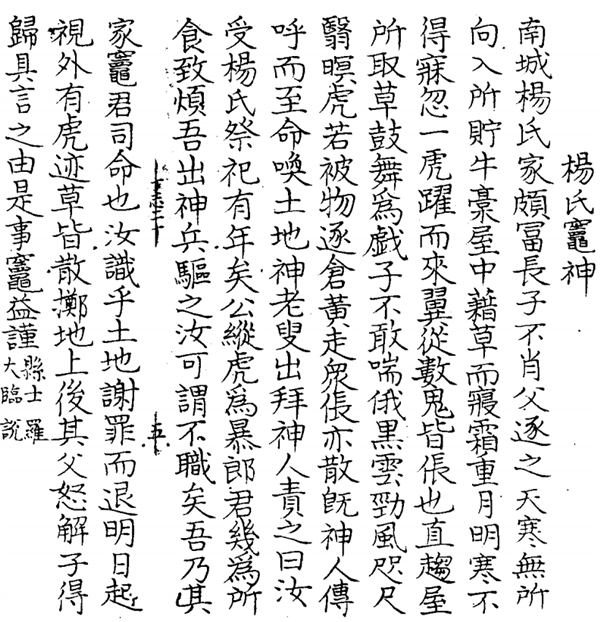 楊氏竈神
南城楊氏家頗冨長子不肖父逐之天寒無所
向入所貯牛藁屋中藉草而寢霜重月明寒不
得寐忽一虎躍而來翼從數鬼皆倀也直趨屋
所取草鼓舞爲戲子不敢喘俄黒雲勁風咫尺
翳暝虎若被物逐倉黃走衆倀亦散旣神人傳
呼而至命喚土地神老叟出拜神人責之曰汝
受楊氏祭祀有年矣公縱虎爲暴郎君幾爲所
食致煩吾出神兵驅之汝可謂不職矣吾乃其
家竈君司命也汝識乎土地謝罪而退明日起
視外有虎迹草皆散擲地上後其父怒解子得
歸具言之由是事竈益謹縣士羅
大臨說